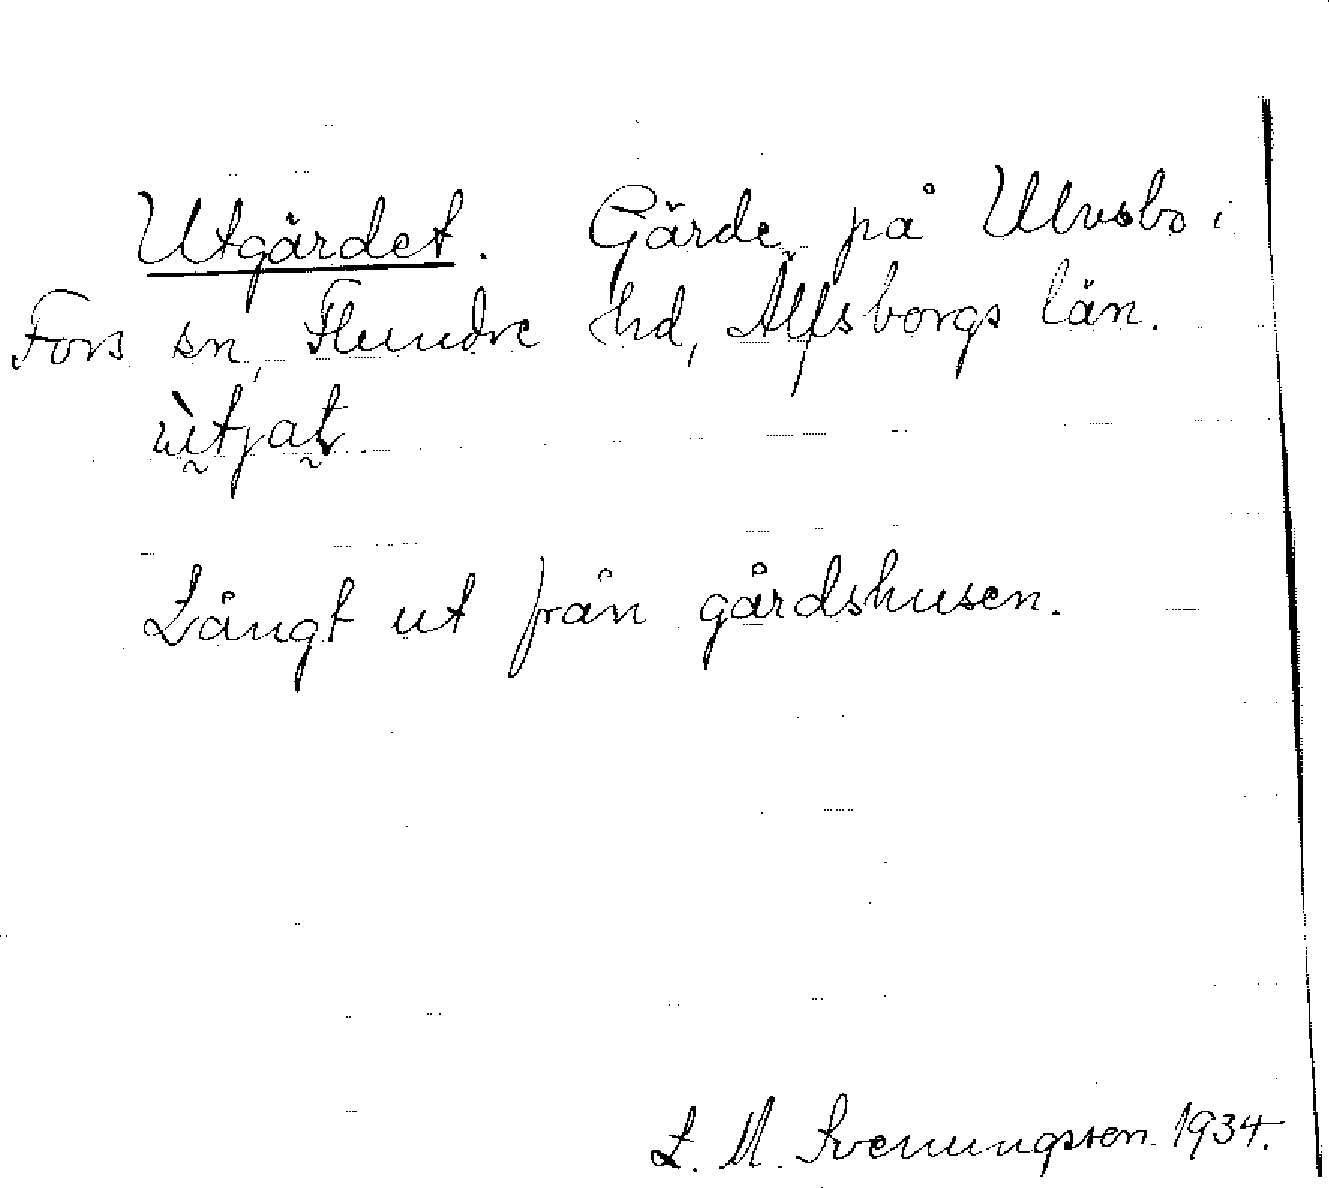 Utgärdet. Gärde på Ulvsbo i
Fors sn, Flundre hd, Älfsborgs län.
ùtjat
Långt ut från gårdshusen.
L. M. Svenungsson 1934.